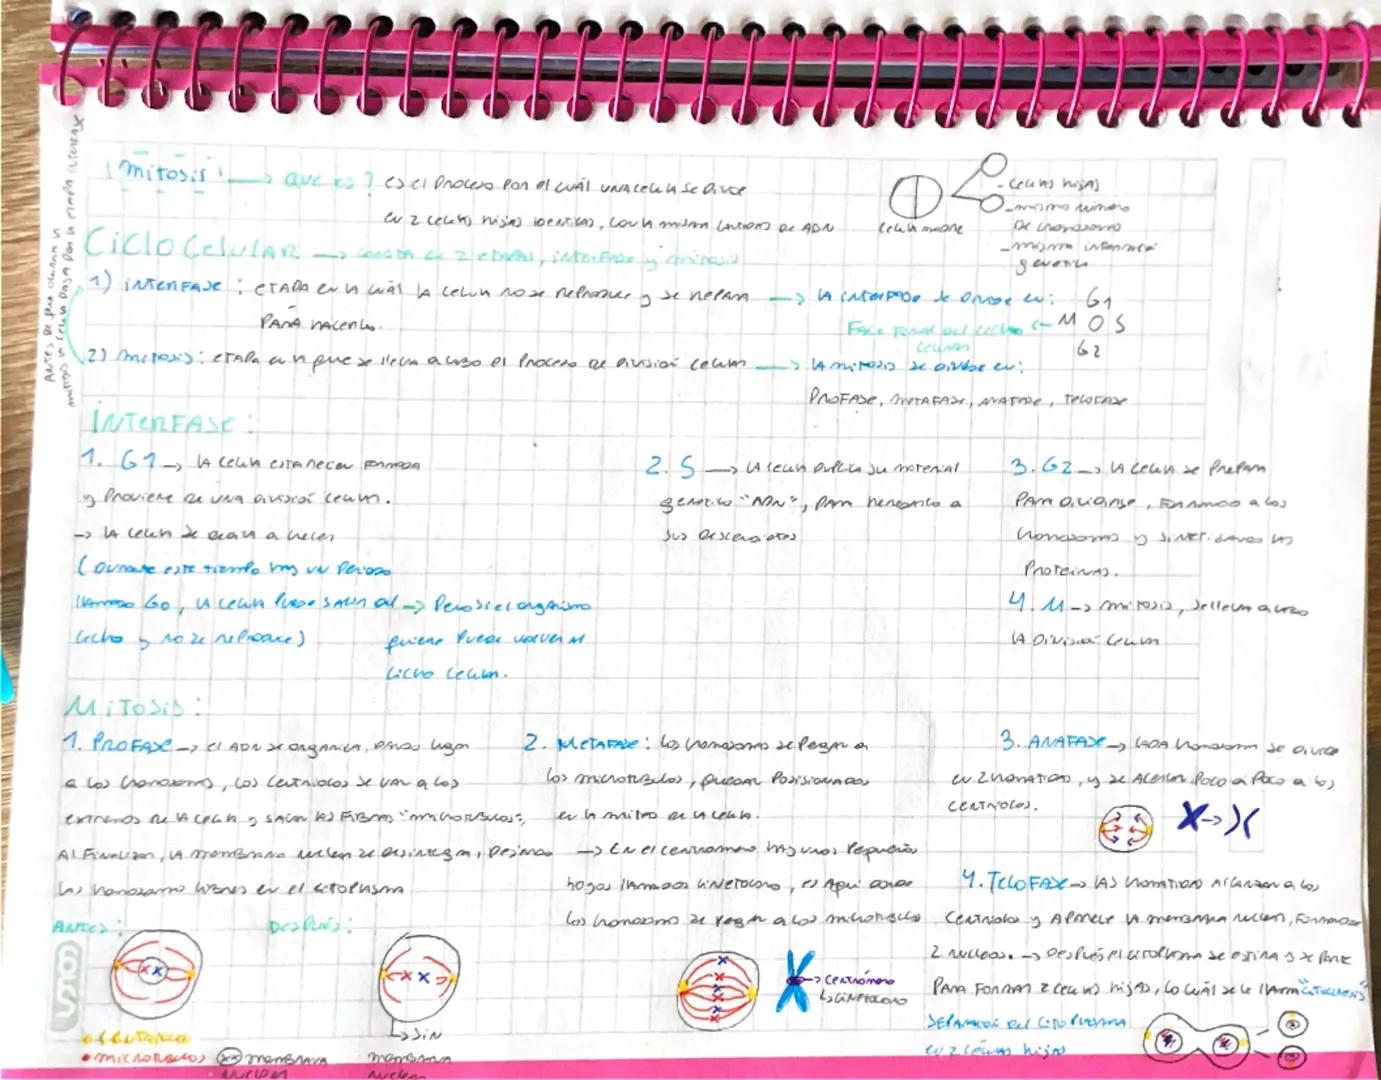 Mitosis → que es? es el proceso por el cuál una celula se divide
en 2 celulas hijas identicas, con la misma cantidad de ADN
celula madre
- celulas hijas
- mismo número
de cromosomas
- misma información
genetica
Ciclo Celular → consta de 2 etapas, interfase y mitosis
Antes de que ocurra la
mitosis la celula pasa por la etapa interfase
1) interfase: etapa en la cuál la celula no se reproduce y se prepara
para hacerlo.
→ la interfase se divide en: G1
Fase final del ciclo ← M O S
celular
G2
2) mitosis: etapa en la que se lleva a cabo el proceso de división celular
→ la mitosis se divide en:
Profase, metafase, anafase, telofase
INTERFASE:
1. G1 → la celula esta recien formada
y proviene de una división celular.
→ la celula se a crecer
(durante este tiempo hay un periodo
llamado G0, la celula puede salir del
ciclo y no se reproduce)
→ Pero si el organismo
quiere puede volver al
ciclo celular.
2. S → la celula duplica su material
genetico "ADN", para heredarlo a
sus descendientes
3. G2 → la celula se prepara
para dividirse, formando a los
cromosomas y sintetizando las
proteinas.
4. M → mitosis, se lleva a cabo
la división celular
MITOSIS:
1. PROFASE → el ADN se organiza, dando lugar
a los cromosomas, los centriolos se van a los
extremos de la celula y salen las fibras "microtubulos",
Al finalizar, la membrana nuclear se desintegra, dejando
los cromosomas libres en el citoplasma
ANTES:
Después:
• centriolo
• microtubulos
membrana
nuclear
sin
membrana
nuclear
2. METAFASE: los cromosomas se pegan a
los microtubulos, quedan posicionados
en la mitad de la celula.
→ En el centromero hay unos pequeños
llamados cinetocoro, es aqui donde
los cromosomas se pegan a los microtubulos
→ centrómero
↳ cinetocoro
3. ANAFASE → cada cromosoma se divide
en 2 cromatidas, y se acercan poco a poco a los
centriolos.
4. TELOFASE → las cromatidas alcanzan a los
centriolos y aparece la membrana nuclear, formando
2 nucleos. → Después el citoplasma se estira y se parte
para formar 2 celulas hijas, lo cuál se le llama "citocinesis"
separación del citoplasma
en 2 celulas hijas